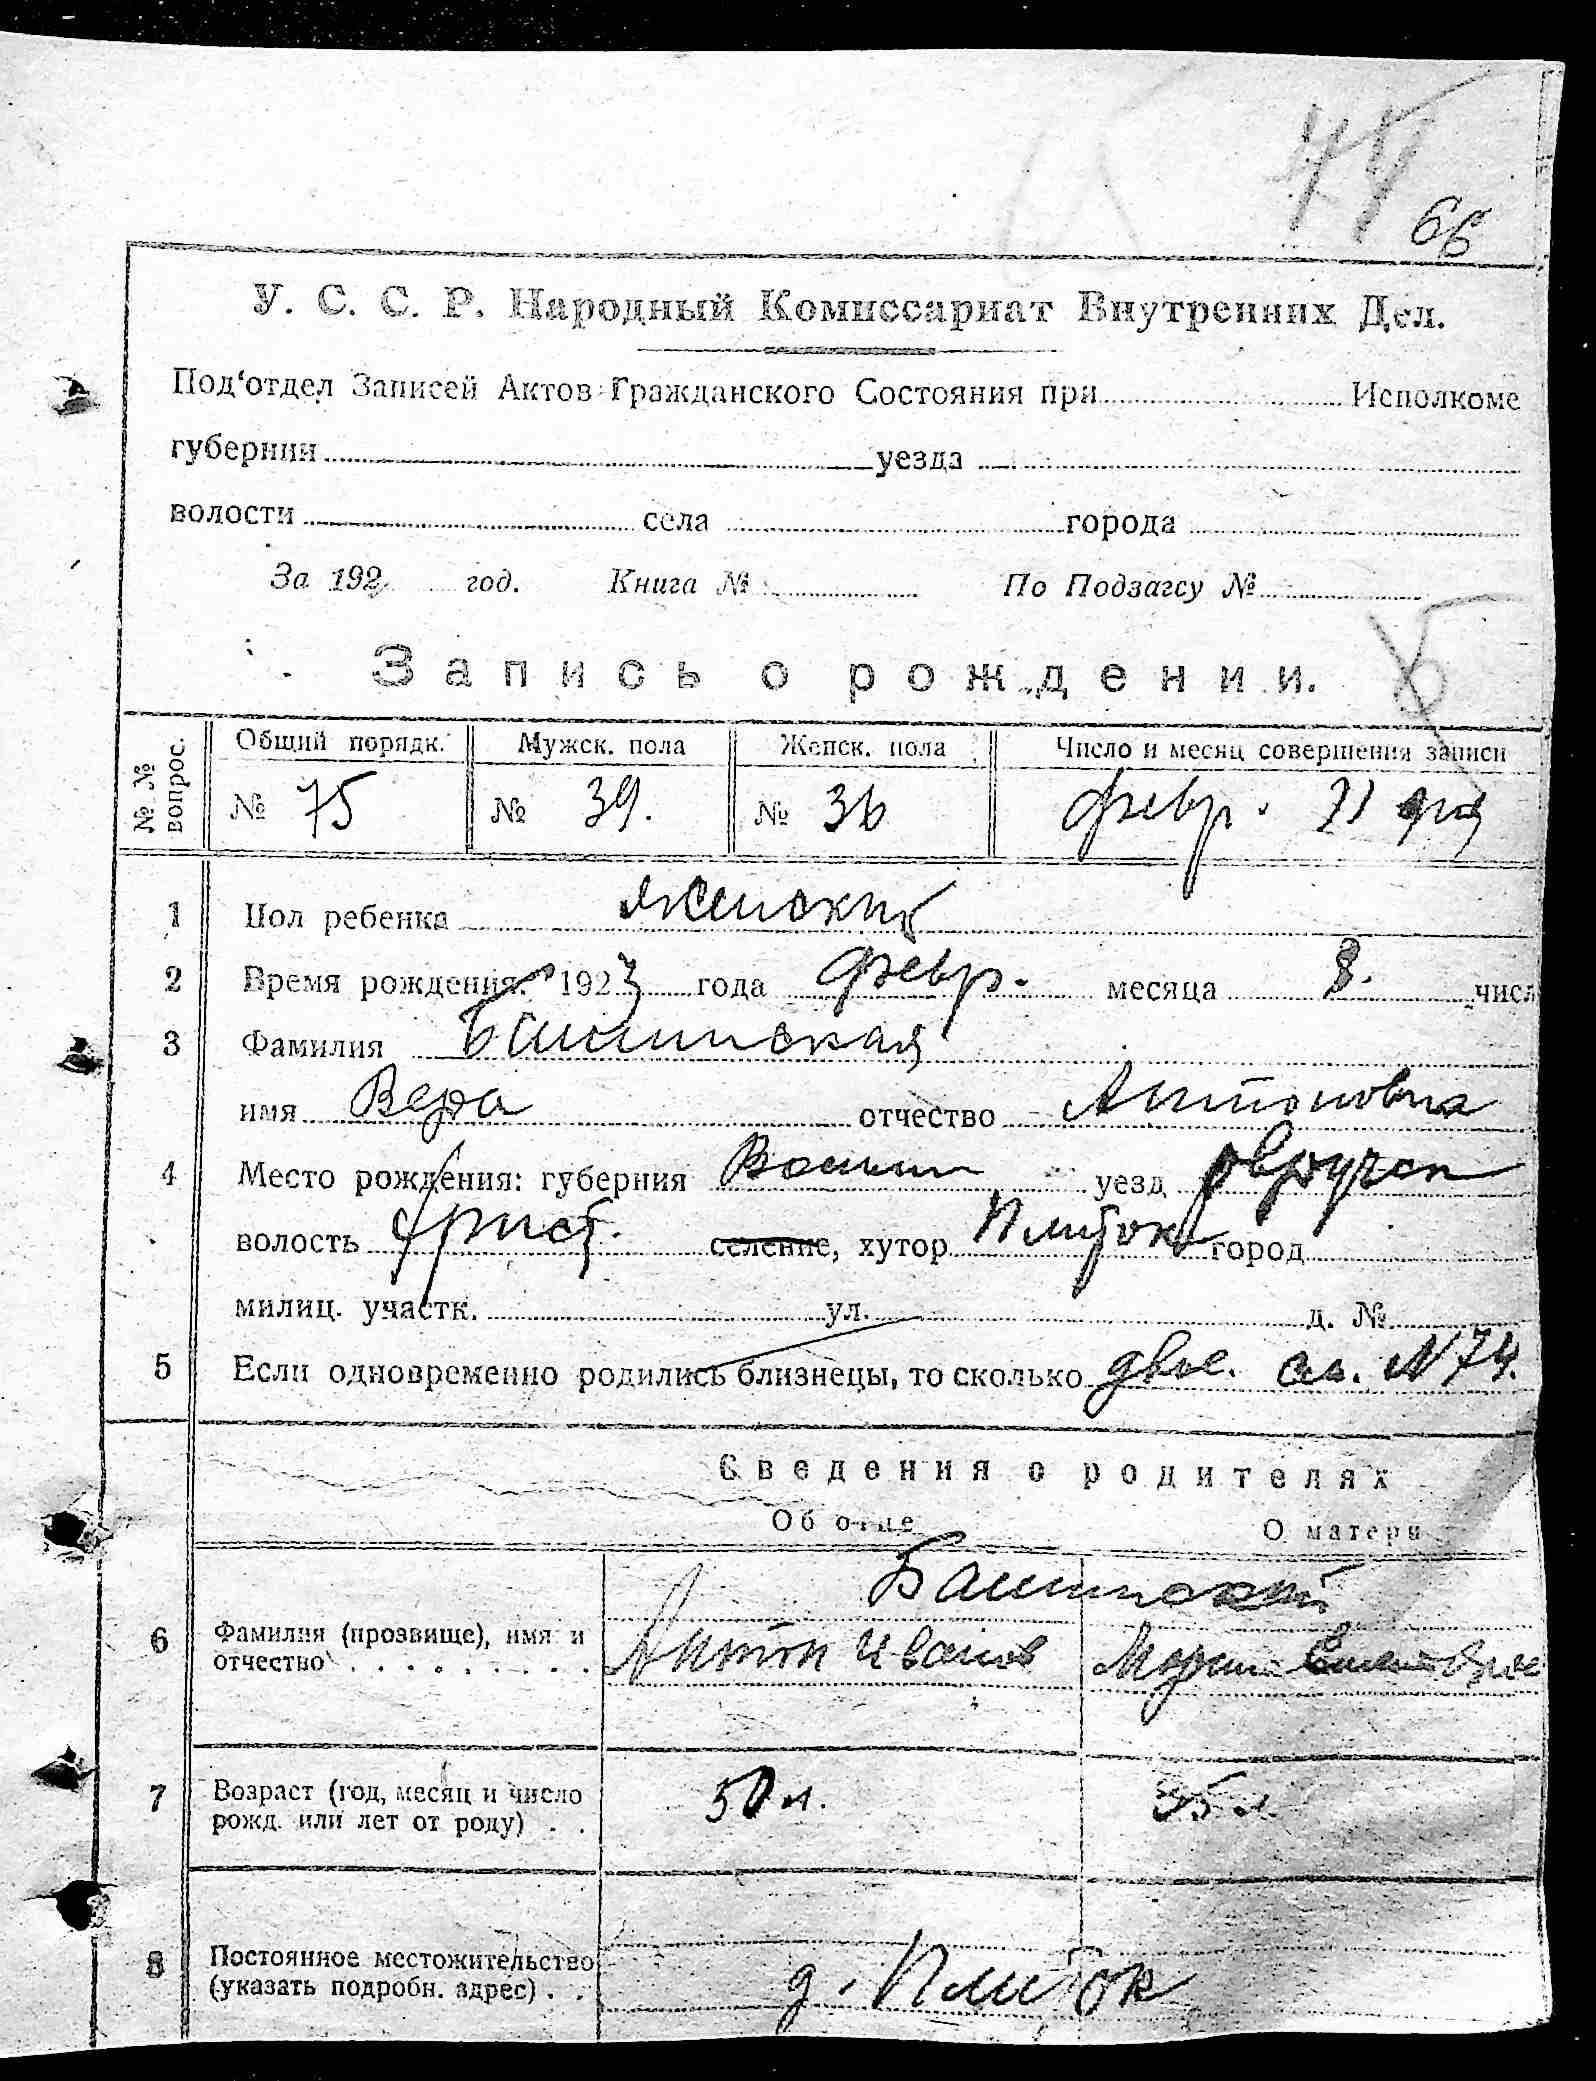 66
У. С. С. Р. Народный Комиссариат Внутренних Дел.
Под'отдел Записей Актов Гражданского Состояния при Исполкоме
губернии уезда
волости села города
За 192 год. Книга № По Подзагсу №
Запись о рождении.
№ № вопрос. Общий порядк. Мужск. пола Женск. пола Число и месяц совершения записи
№ 75 № 39. № 36 февр. дня
1 Пол ребенка женский
2 Время рождения: 1923 года февр. месяца 8. числ
3 Фамилия
имя Вера отчество Антоновна
4 Место рождения: губерния Волын уезд Овручск
волость селение, хутор город
милиц. участк. ул. д. №
5 Если одновременно родились близнецы, то сколько двое. см. N 74.
Сведения о родителях
Об отце О матери
6 Фамилия (прозвище), имя и
отчество Антон Иванов
7 Возраст (год, месяц и число
рожд. или лет от роду) 50 л. 35 л.
8 Постоянное местожительство
(указать подробн. адрес) д.